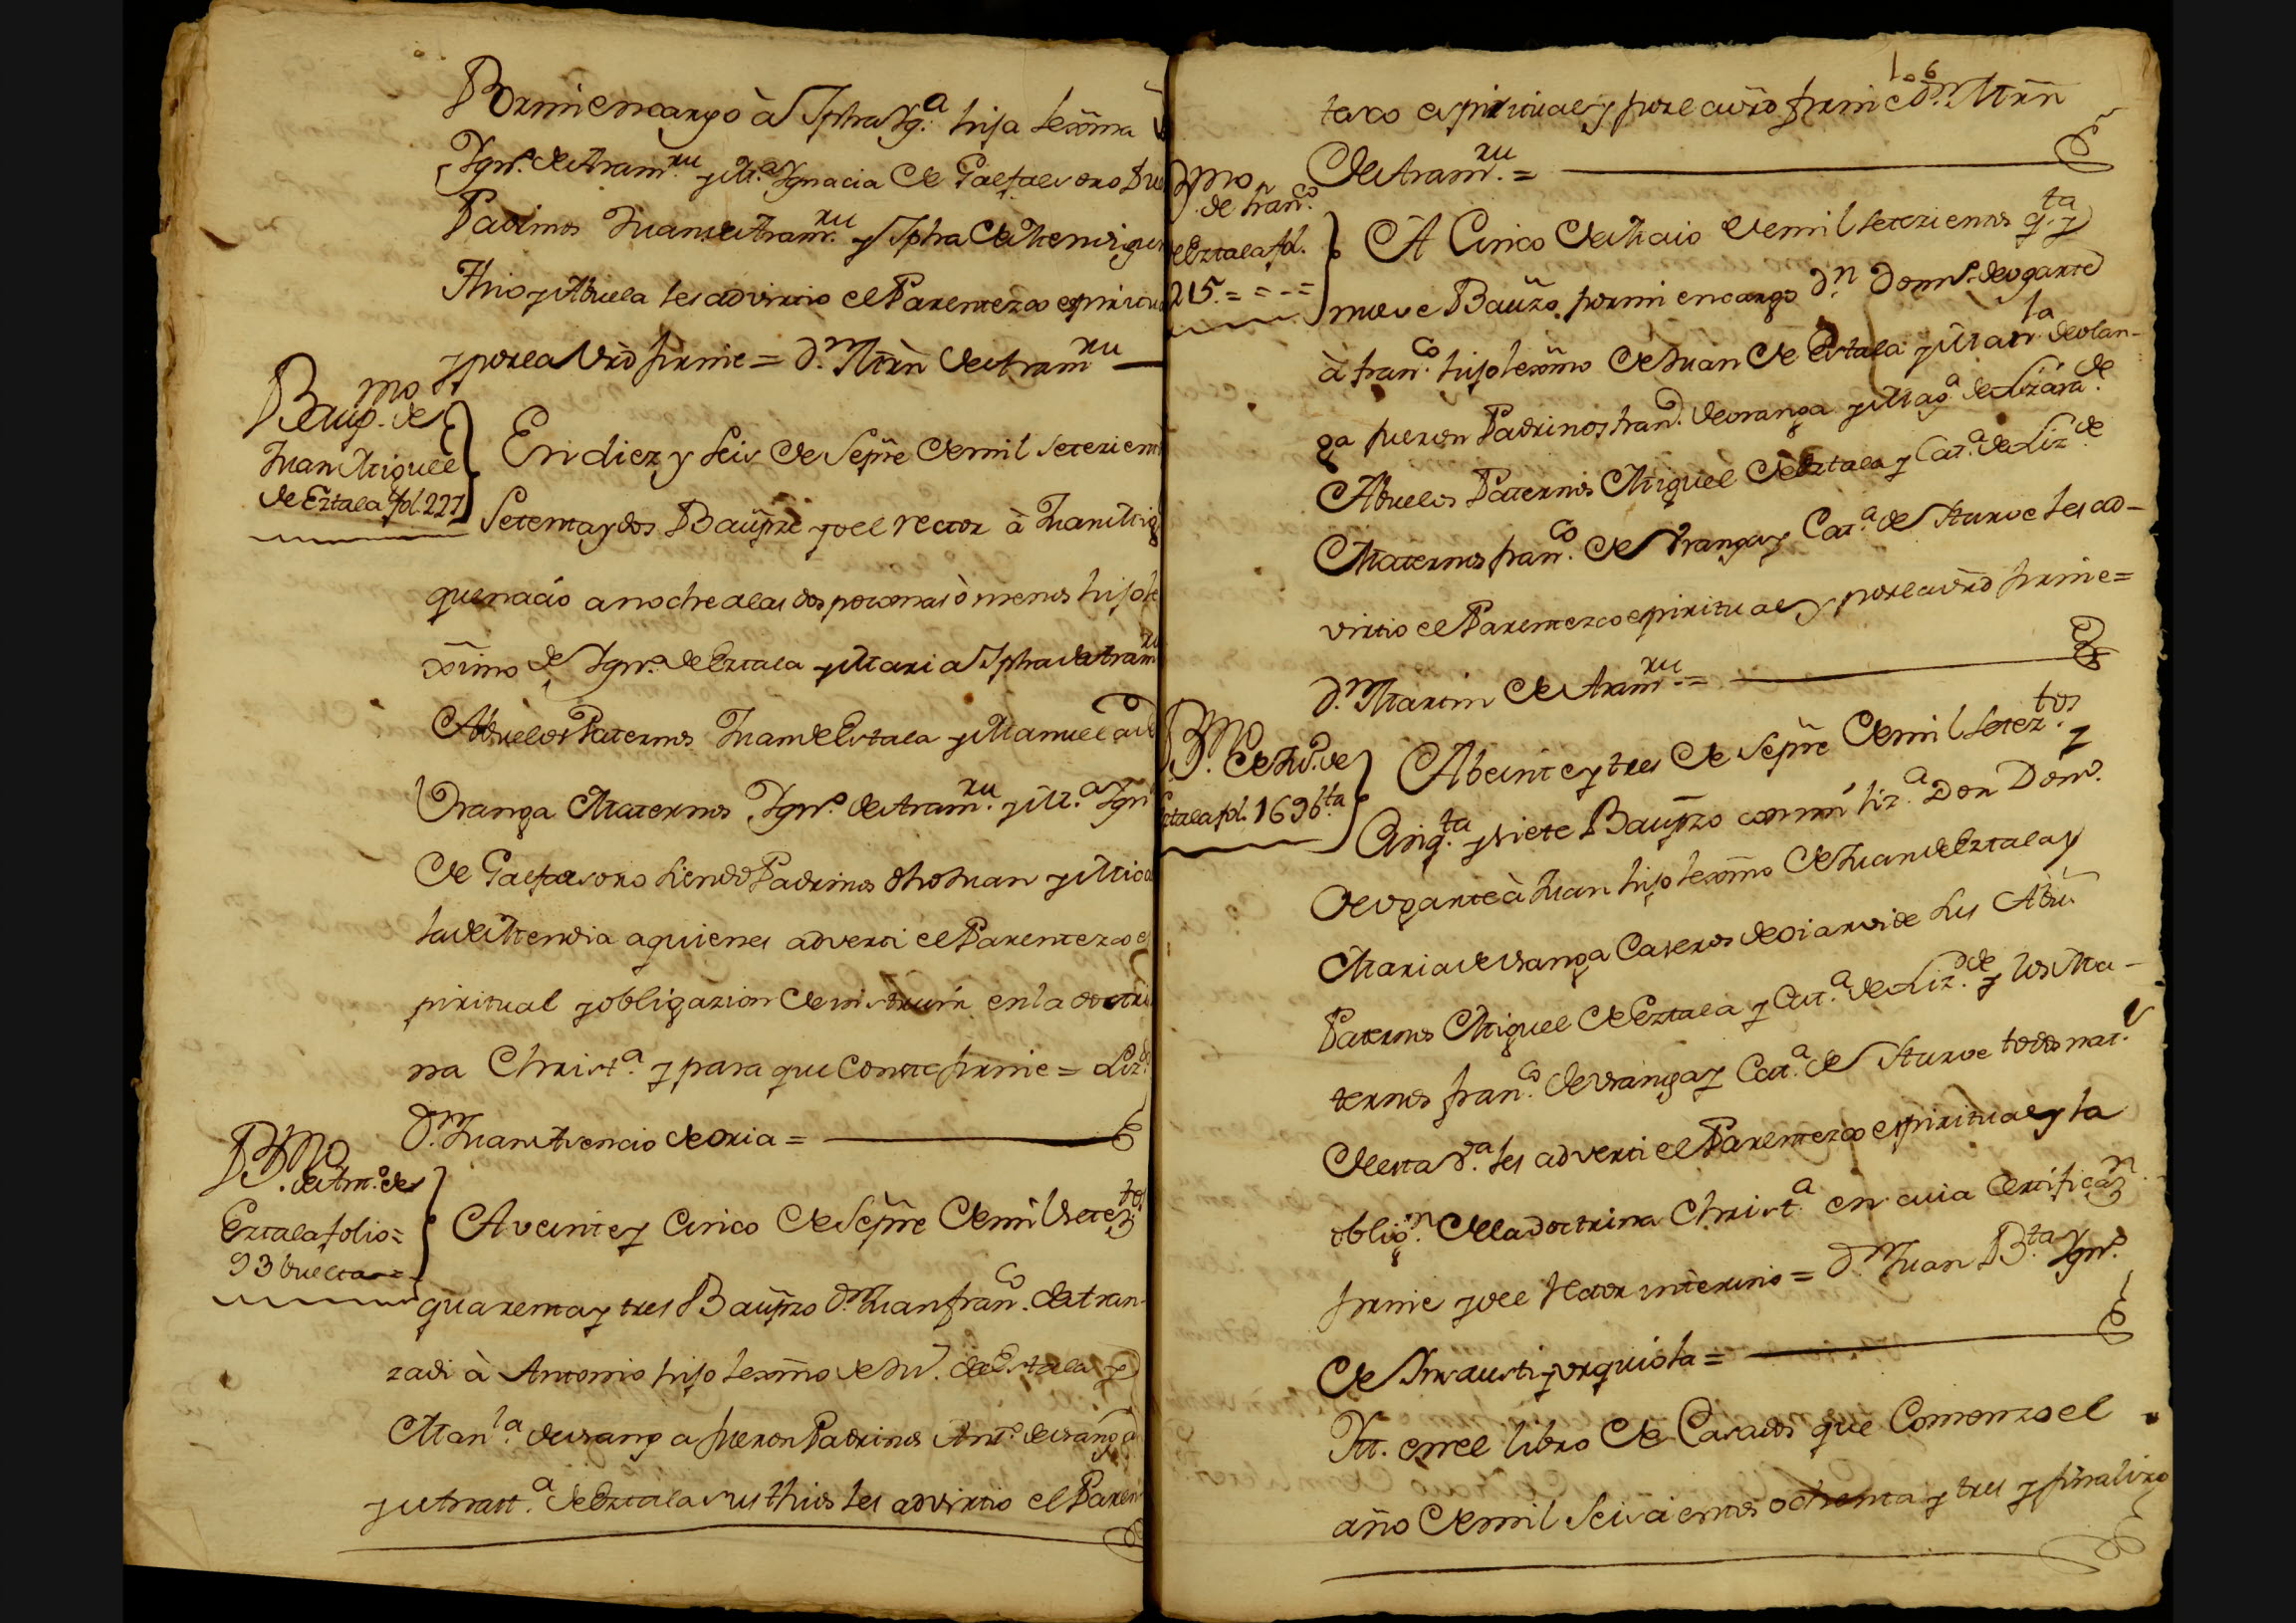 Por mi encargo à Jpha Ig.ª hija lexma
Ign.º de Aram.ru y M.ª Ignacia de Galfarsoro
Padrinos Juan de Aram.ru y Jpha de Mendi
Thio y Abuela les advirtio el Parentezco espiritu
y por la Verd firme = D.n Mrn de Aram.ru
Baup.mo de
Juan Miguel
de Eztala fol. 227
En diez y seis de Sepre de mil setezien
Setenta y dos Baupze yo el rector à Juan Mig
que nacio anoche a las dos poco mas ò menos hijo le
ximo de Ign.º de Eztala y Maria Jpha de Aram.ru
Abuelos Paternos Juan de Eztala y Manuela de
Vranga Maternos Ign.º de Aram.ru y M.ª Ign
de Galfarsoro siendo Padrinos dho Juan y Mica
la de Mendia a quienes adverti el Parentezco es
piritual y obligazion de instruir en la doctri
na Christ.ª y para que Conste firme = Liz.do
D.n Juan Asencio de oria =
B.mo de Ant.º de
Eztala folio =
93 buelta =
A veinte y Cinco de Sepre de mil setez.tos
quarenta y tres Baupzo D.n Juan fran.co de Aran
zadi à Antonio hijo lexmo de Ju.º de Eztala y
Man.la de vranga fueron Padrinos Ant.º de vranga
y Mart.ª de Eztala sus thios les advirtio el Paren
106
tezco espiritual y por la verd firme D.n Mrn
de Aram.ru =
B.mo
de fran.co
de Eztala fol.
215 = = - =
A Cinco de Maio de mil setezientos q.ta y
nueve Baupzo por mi encargo D.n Dom.º de vgarte
à fran.co hijo lexmo de Juan de Eztala y Man.la de vran-
ga fueron Padrinos fran.co de vranga y Mag.ª de Lizara.de
Abuelos Paternos Miguel de Eztala y Cat.ª de Liz.de
Maternos fran.co de Vranga y Cat.ª de Iturve les ad-
virtio el Parentezco espiritual y por la verd firme =
D.n Martin de Aram.ru =
B.mo de Ju.º de
Eztala fol. 169 b.ta
A beinte y tres de Sepre de mil setez.tos y
Cinq.ta y siete Baupzo con mi liz.ª Don Dom.º
de vgarte à Juan hijo lexmo de Juan de Eztala y
Maria de vranga Caseros de oiarvide sus Abu.
Paternos Miguel de Eztala y Cat.ª de Liz.de y los Ma-
ternos fran.co de vranga y Cat.ª de Iturve todos nat.s
de esta v.ª les adverti el Parentezco espiritual y la
oblig.n de la doctrina Christ.ª en cuia Certificaz.n
firme yo el Rector interino = D.n Juan B.ta Ign.º
de Insausti y vrquiola =
Itt. en el libro de Casados que Comenzo el
año de mil seiscientos ochenta y tres y finalizo